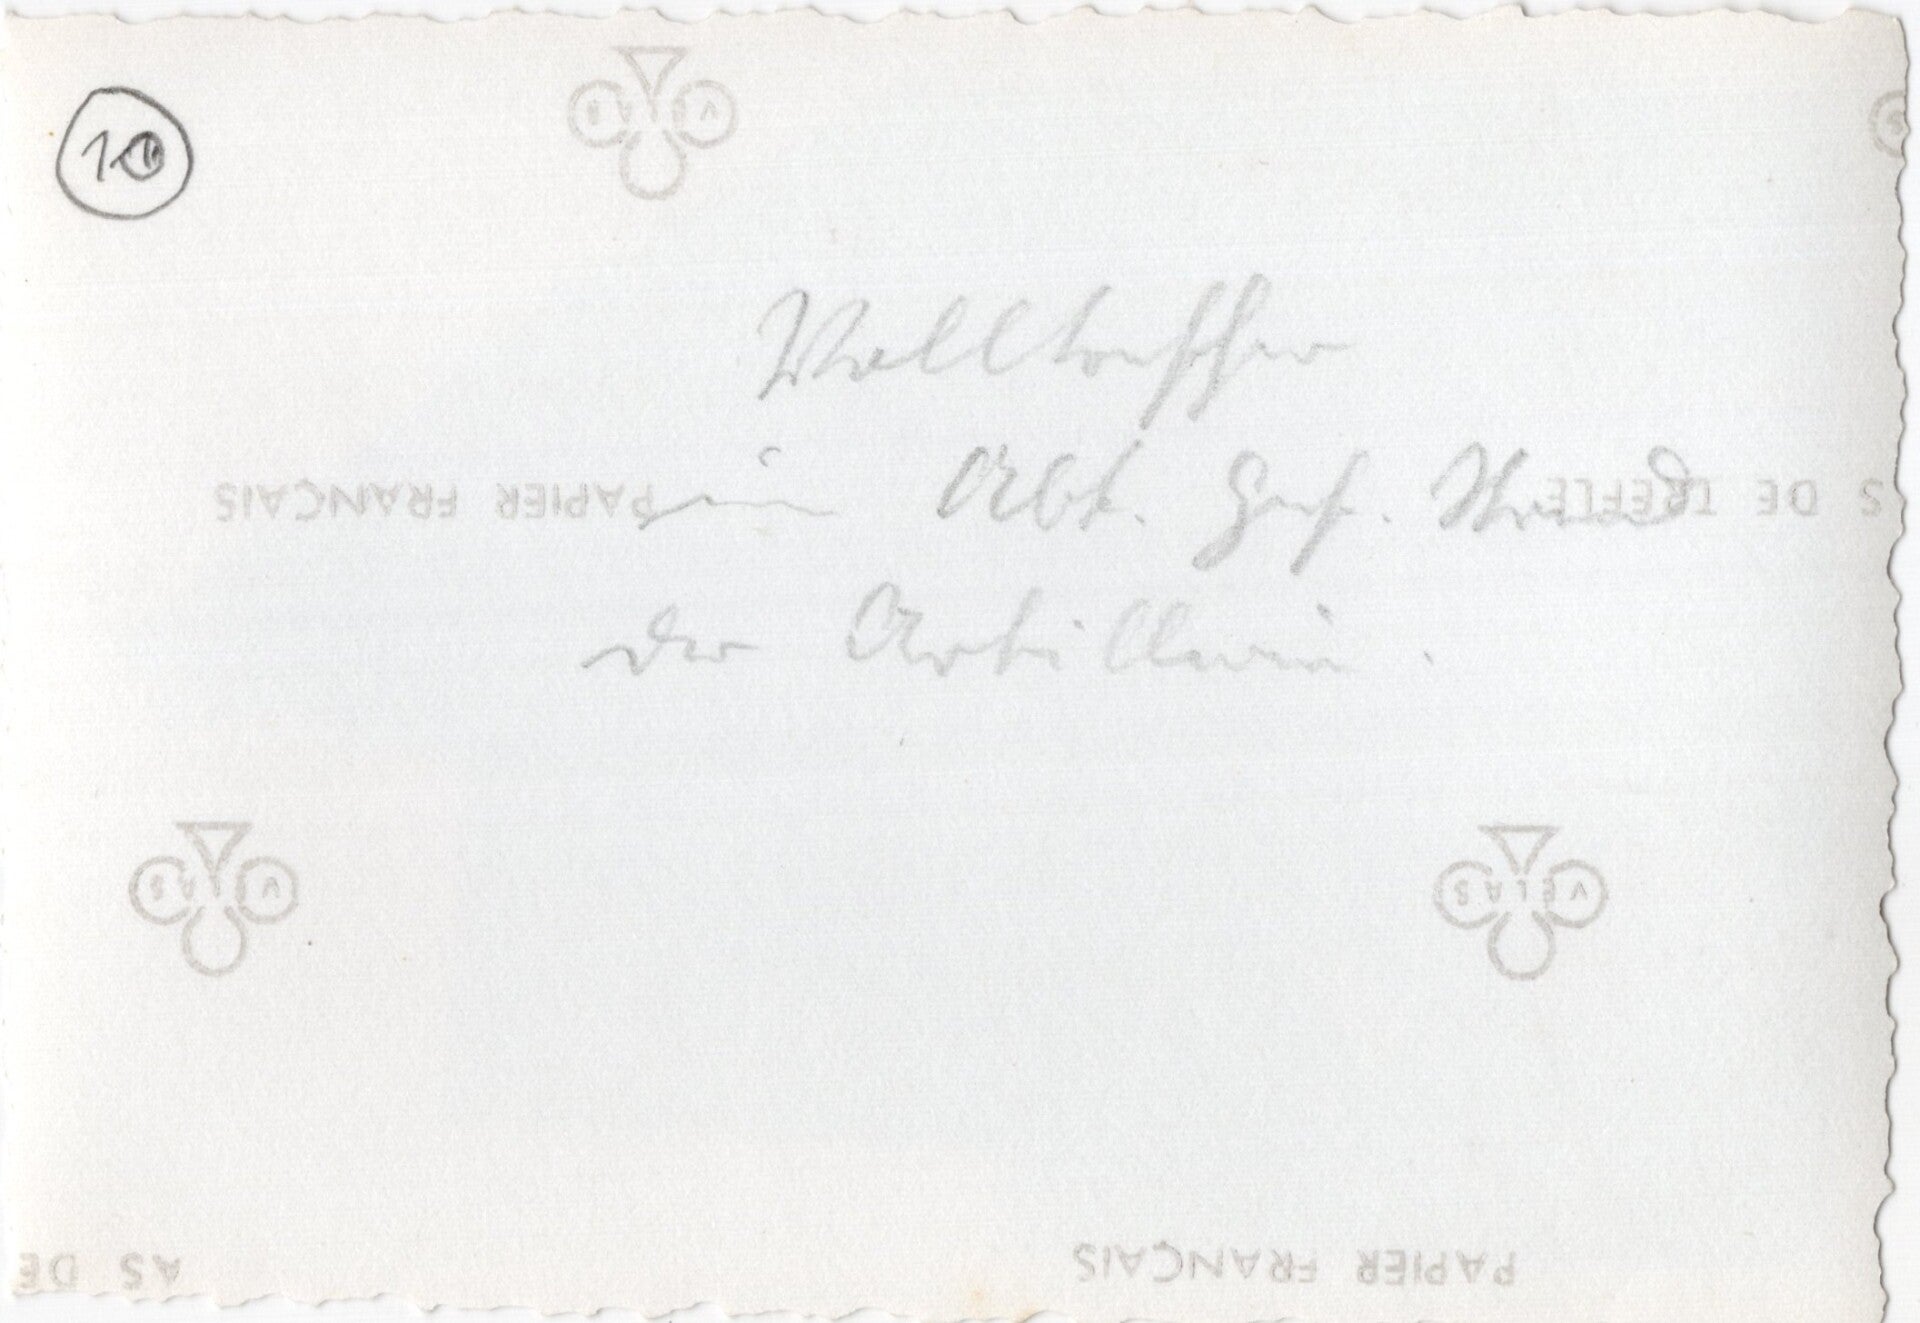 10
VELAS
Volltreffer
PAPIER FRANÇAIS
im Abt. Gef. Stand
S DE TREFLE
der Artillerie.
VELAS
VELAS
AS DE
PAPIER FRANÇAIS